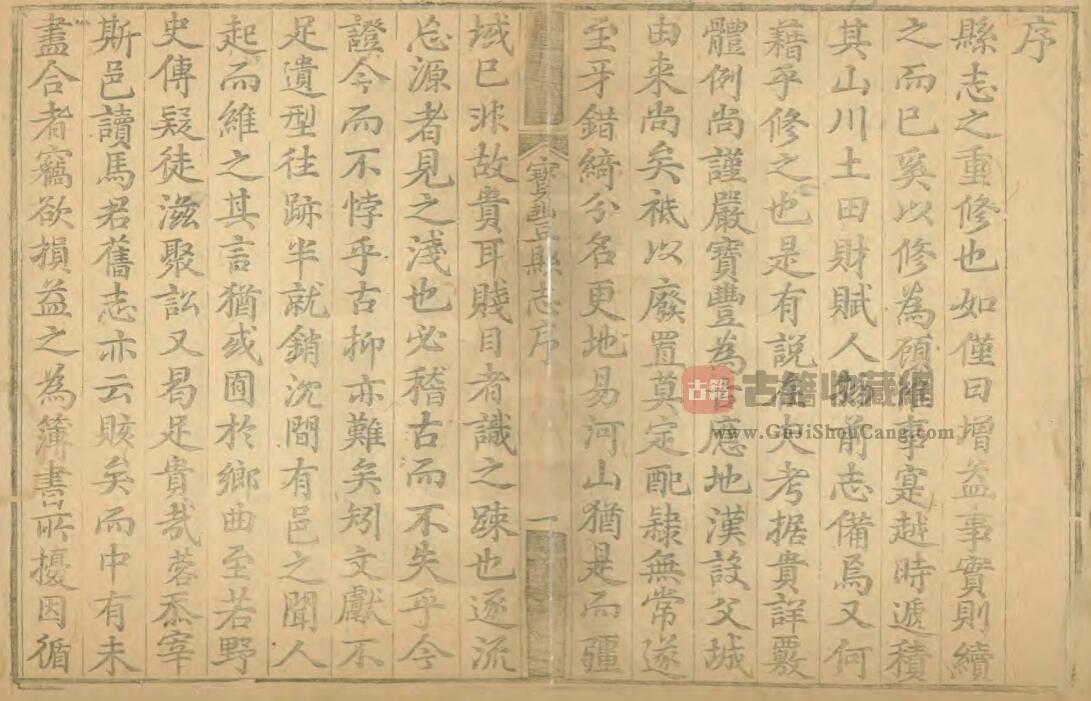 序
縣志之重修也如僅曰增益事實則續
之而已奚以修為顧事寔越時遞積
其山川土田財賦人物前志備焉又何
藉乎修之也是有說焉夫考据貴詳覈
體例尚謹嚴寶豐為古應地漢設父城
由来尚矣祗以廢置奠定配隷無常遂
至牙錯綺分名更地易河山猶是而疆
寶豐縣志序
一
域已非故貴耳賤目者識之踈也逐流
忘源者見之淺也必稽古而不失乎今
證今而不悖乎古抑亦難矣矧文獻不
足遺型往跡半就銷沈間有邑之聞人
起而維之其言猶或囿於鄉曲至若野
史傳疑徒滋聚訟又曷足貴㢤蓉忝宰
斯邑讀馬君舊志亦云賅矣而中有未
盡合者竊欲損益之為簿書所擾因循
古籍
古籍收藏
www.GuJiShouCang.com